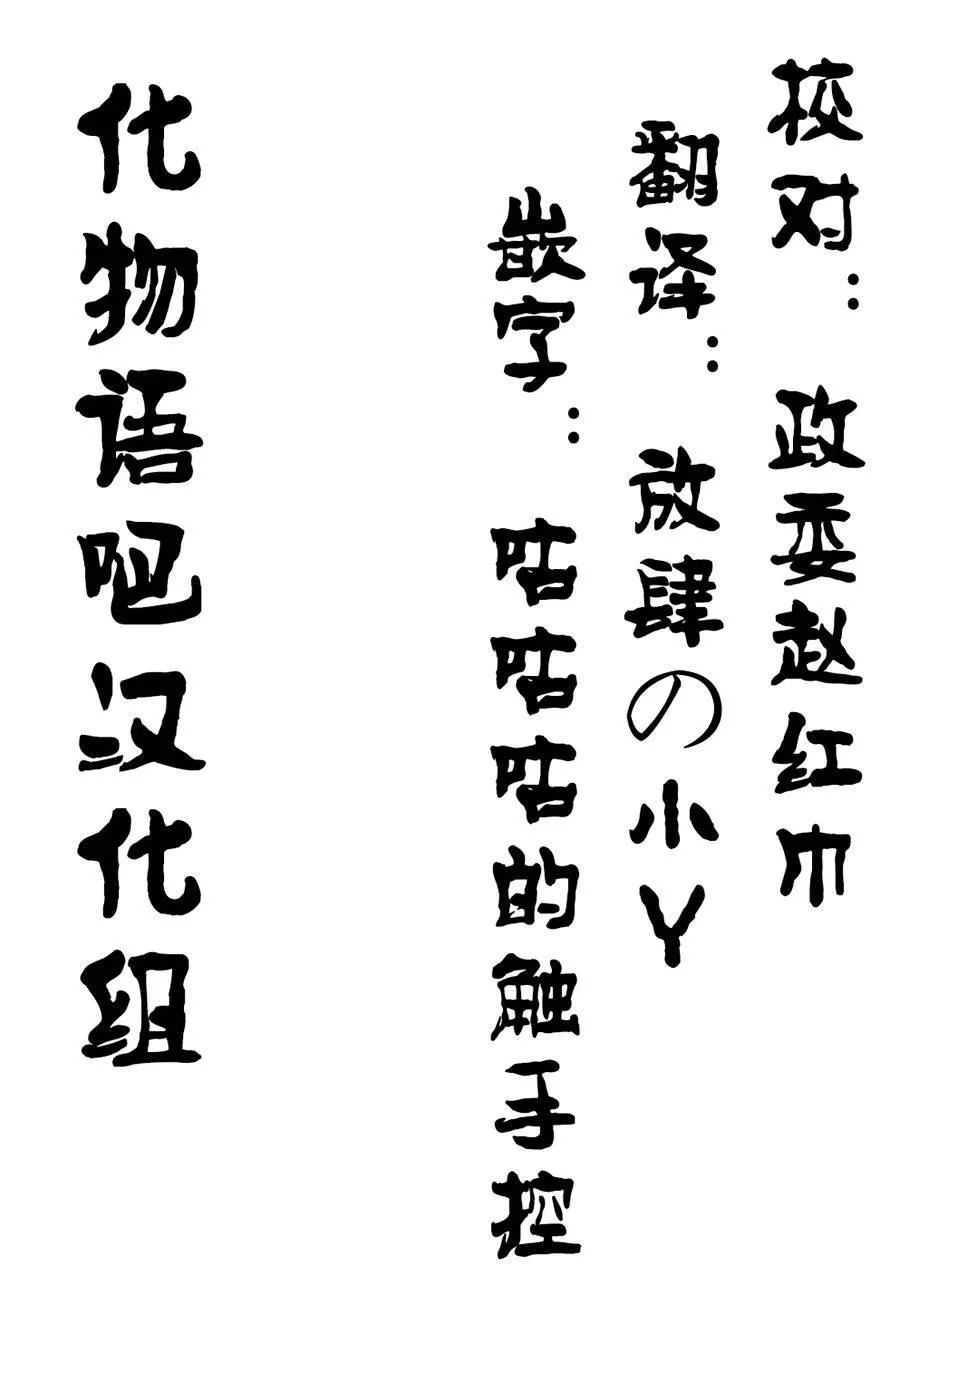 校对：政委赵红巾
翻译：放肆の小Y
嵌字：咕咕咕的触手控
化物语吧汉化组